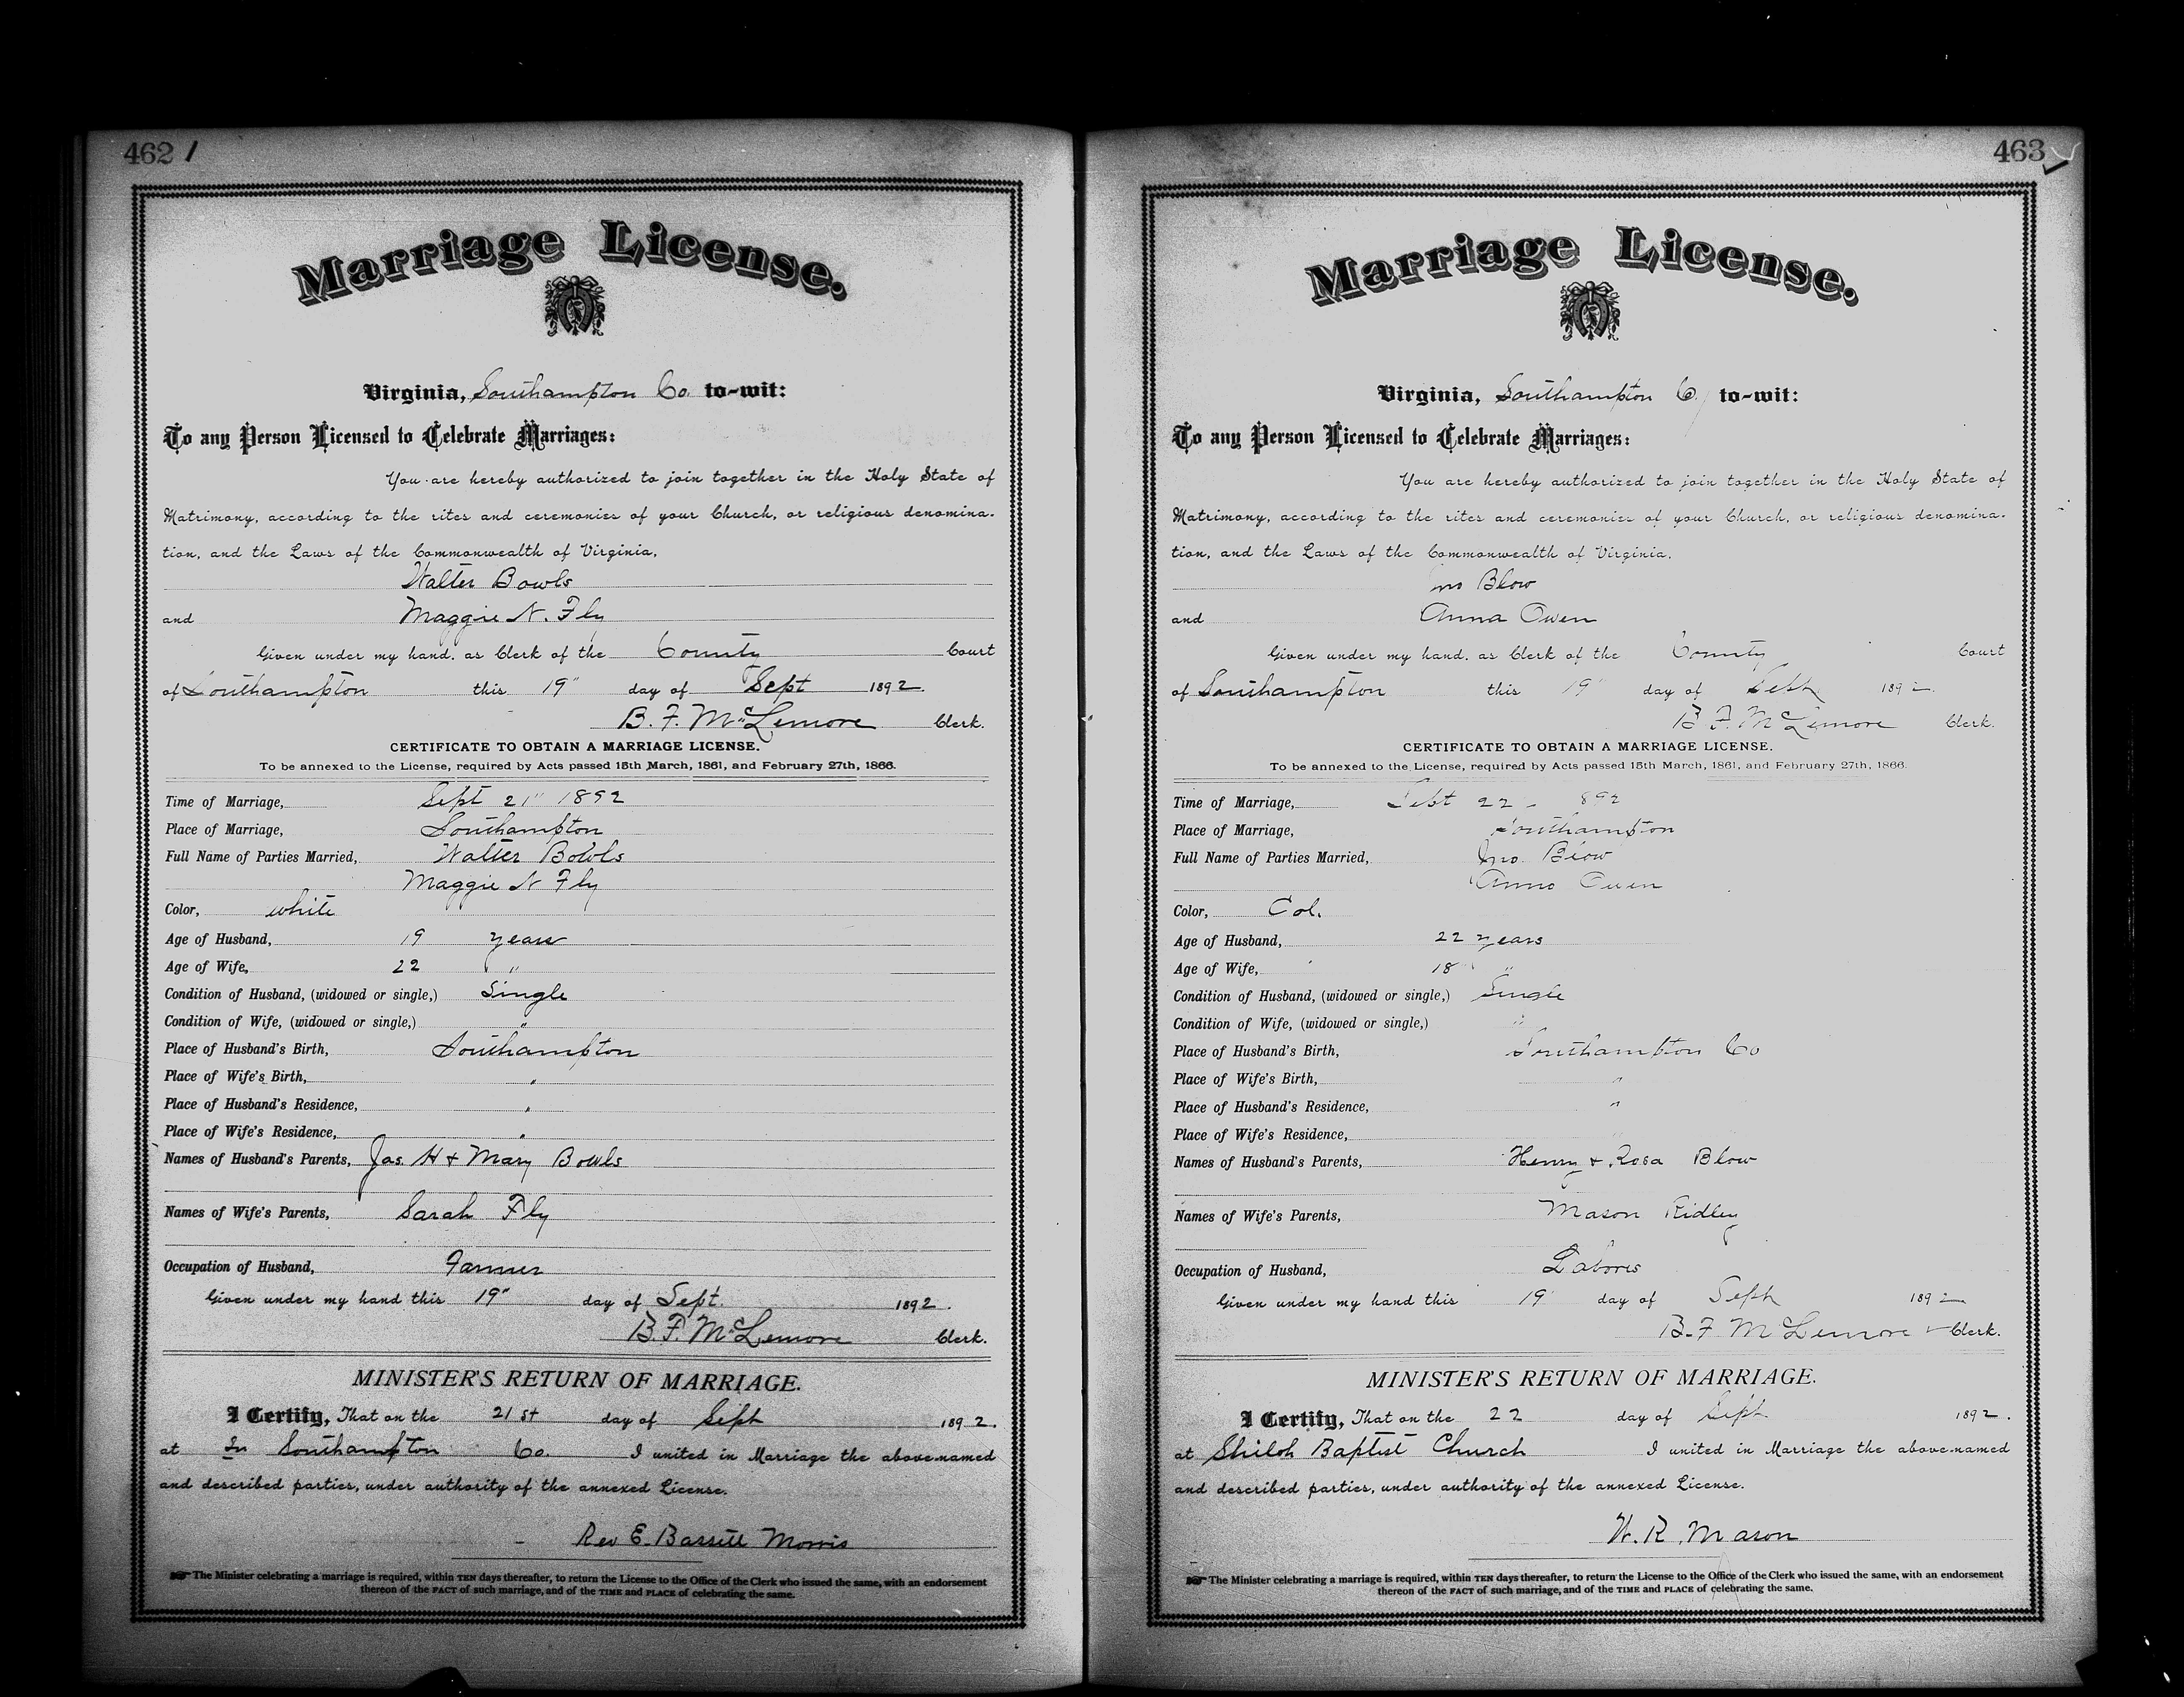 462 /
Marriage License.
Virginia, Southampton Co. to-wit:
To any Person Licensed to Celebrate Marriages:
You are hereby authorized to join together in the Holy State of
Matrimony, according to the rites and ceremonies of your Church, or religious denomina-
tion, and the Laws of the Commonwealth of Virginia,
Walter Bowls
and Maggie N. Fly
Given under my hand, as Clerk of the County Court
of Southampton this 19" day of Sept 1892.
B. F. McLemore Clerk.
CERTIFICATE TO OBTAIN A MARRIAGE LICENSE.
To be annexed to the License, required by Acts passed 15th March, 1861, and February 27th, 1866.
Time of Marriage, Sept 21" 1892
Place of Marriage, Southampton
Full Name of Parties Married, Walter Bowls
Maggie N Fly
Color, white
Age of Husband, 19 years
Age of Wife, 22 "
Condition of Husband, (widowed or single,) Single
Condition of Wife, (widowed or single,) "
Place of Husband's Birth, Southampton
Place of Wife's Birth, "
Place of Husband's Residence, "
Place of Wife's Residence, "
Names of Husband's Parents, Jas. H & Mary Bowls
Names of Wife's Parents, Sarah Fly
Occupation of Husband, Farmer
Given under my hand this 19" day of Sept. 1892.
B. F. McLemore Clerk.
MINISTER'S RETURN OF MARRIAGE.
I Certify, That on the 21st day of Sept 1892.
at In Southampton Co. I united in Marriage the above-named
and described parties, under authority of the annexed License.
Rev E. Bassill Morris
The Minister celebrating a marriage is required, within TEN days thereafter, to return the License to the Office of the Clerk who issued the same, with an endorsement
thereon of the FACT of such marriage, and of the TIME and PLACE of celebrating the same.
463
Marriage License.
Virginia, Southampton Co, to-wit:
To any Person Licensed to Celebrate Marriages:
You are hereby authorized to join together in the Holy State of
Matrimony, according to the rites and ceremonies of your Church, or religious denomina-
tion, and the Laws of the Commonwealth of Virginia,
Jno Blow
and Anna Owen
Given under my hand, as Clerk of the County Court
of Southampton this 19" day of Sept 1892.
B F. McLemore Clerk.
CERTIFICATE TO OBTAIN A MARRIAGE LICENSE.
To be annexed to the License, required by Acts passed 15th March, 1861, and February 27th, 1866.
Time of Marriage, Sept 22 - 892
Place of Marriage, Southampton
Full Name of Parties Married, Jno. Blow
Anna Owen
Color, Col.
Age of Husband, 22 years
Age of Wife, 18 "
Condition of Husband, (widowed or single,) Single
Condition of Wife, (widowed or single,) "
Place of Husband's Birth, Southampton Co
Place of Wife's Birth, "
Place of Husband's Residence, "
Place of Wife's Residence, "
Names of Husband's Parents, Henry & Rosa Blow
Names of Wife's Parents, Mason Ridley
Occupation of Husband, Laborer
Given under my hand this 19 day of Sept 1892
B. F McLemore Clerk.
MINISTER'S RETURN OF MARRIAGE.
I Certify, That on the 22 day of Sept 1892.
at Shiloh Baptist Church I united in Marriage the above-named
and described parties, under authority of the annexed License.
W. R. Mason
The Minister celebrating a marriage is required, within TEN days thereafter, to return the License to the Office of the Clerk who issued the same, with an endorsement
thereon of the FACT of such marriage, and of the TIME and PLACE of celebrating the same.